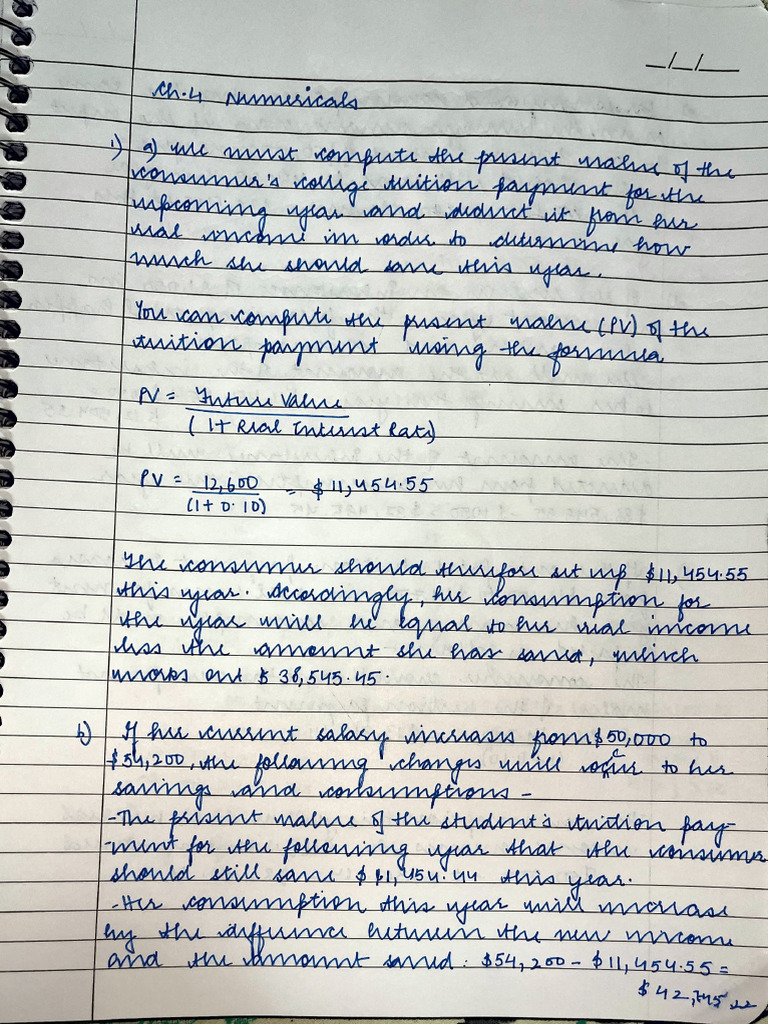 _/_/__
Ch.4 Numericals
1) a) We must compute the present value of the
consumer's college tuition payment for the
upcoming year and deduct it from her
real income in order to determine how
much she should save this year.
You can compute the present value (PV) of the
tuition payment using the formula
PV = Future Value
(1+ Real Interest Rate)
PV = 12,600 = $11,454.55
(1+0.10)
The consumer should therefore set up $11,454.55
this year. Accordingly, her consumption for
the year will be equal to her real income
less the amount she has saved, which
works out $38,545.45.
b) If her current salary increases from $50,000 to
$54,200, the following changes will occur to her
savings and consumptions -
- The present value of the student's tuition pay-
-ment for the following year that the consumer
should still save $11,454.44 this year.
- Her consumption this year will increase
by the difference between the new income
and the amount saved: $54,200 - $11,454.55 =
$42,745.22